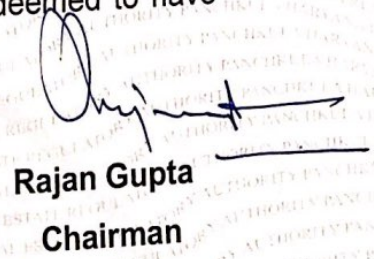 deemed to have
Rajan Gupta
Chairman